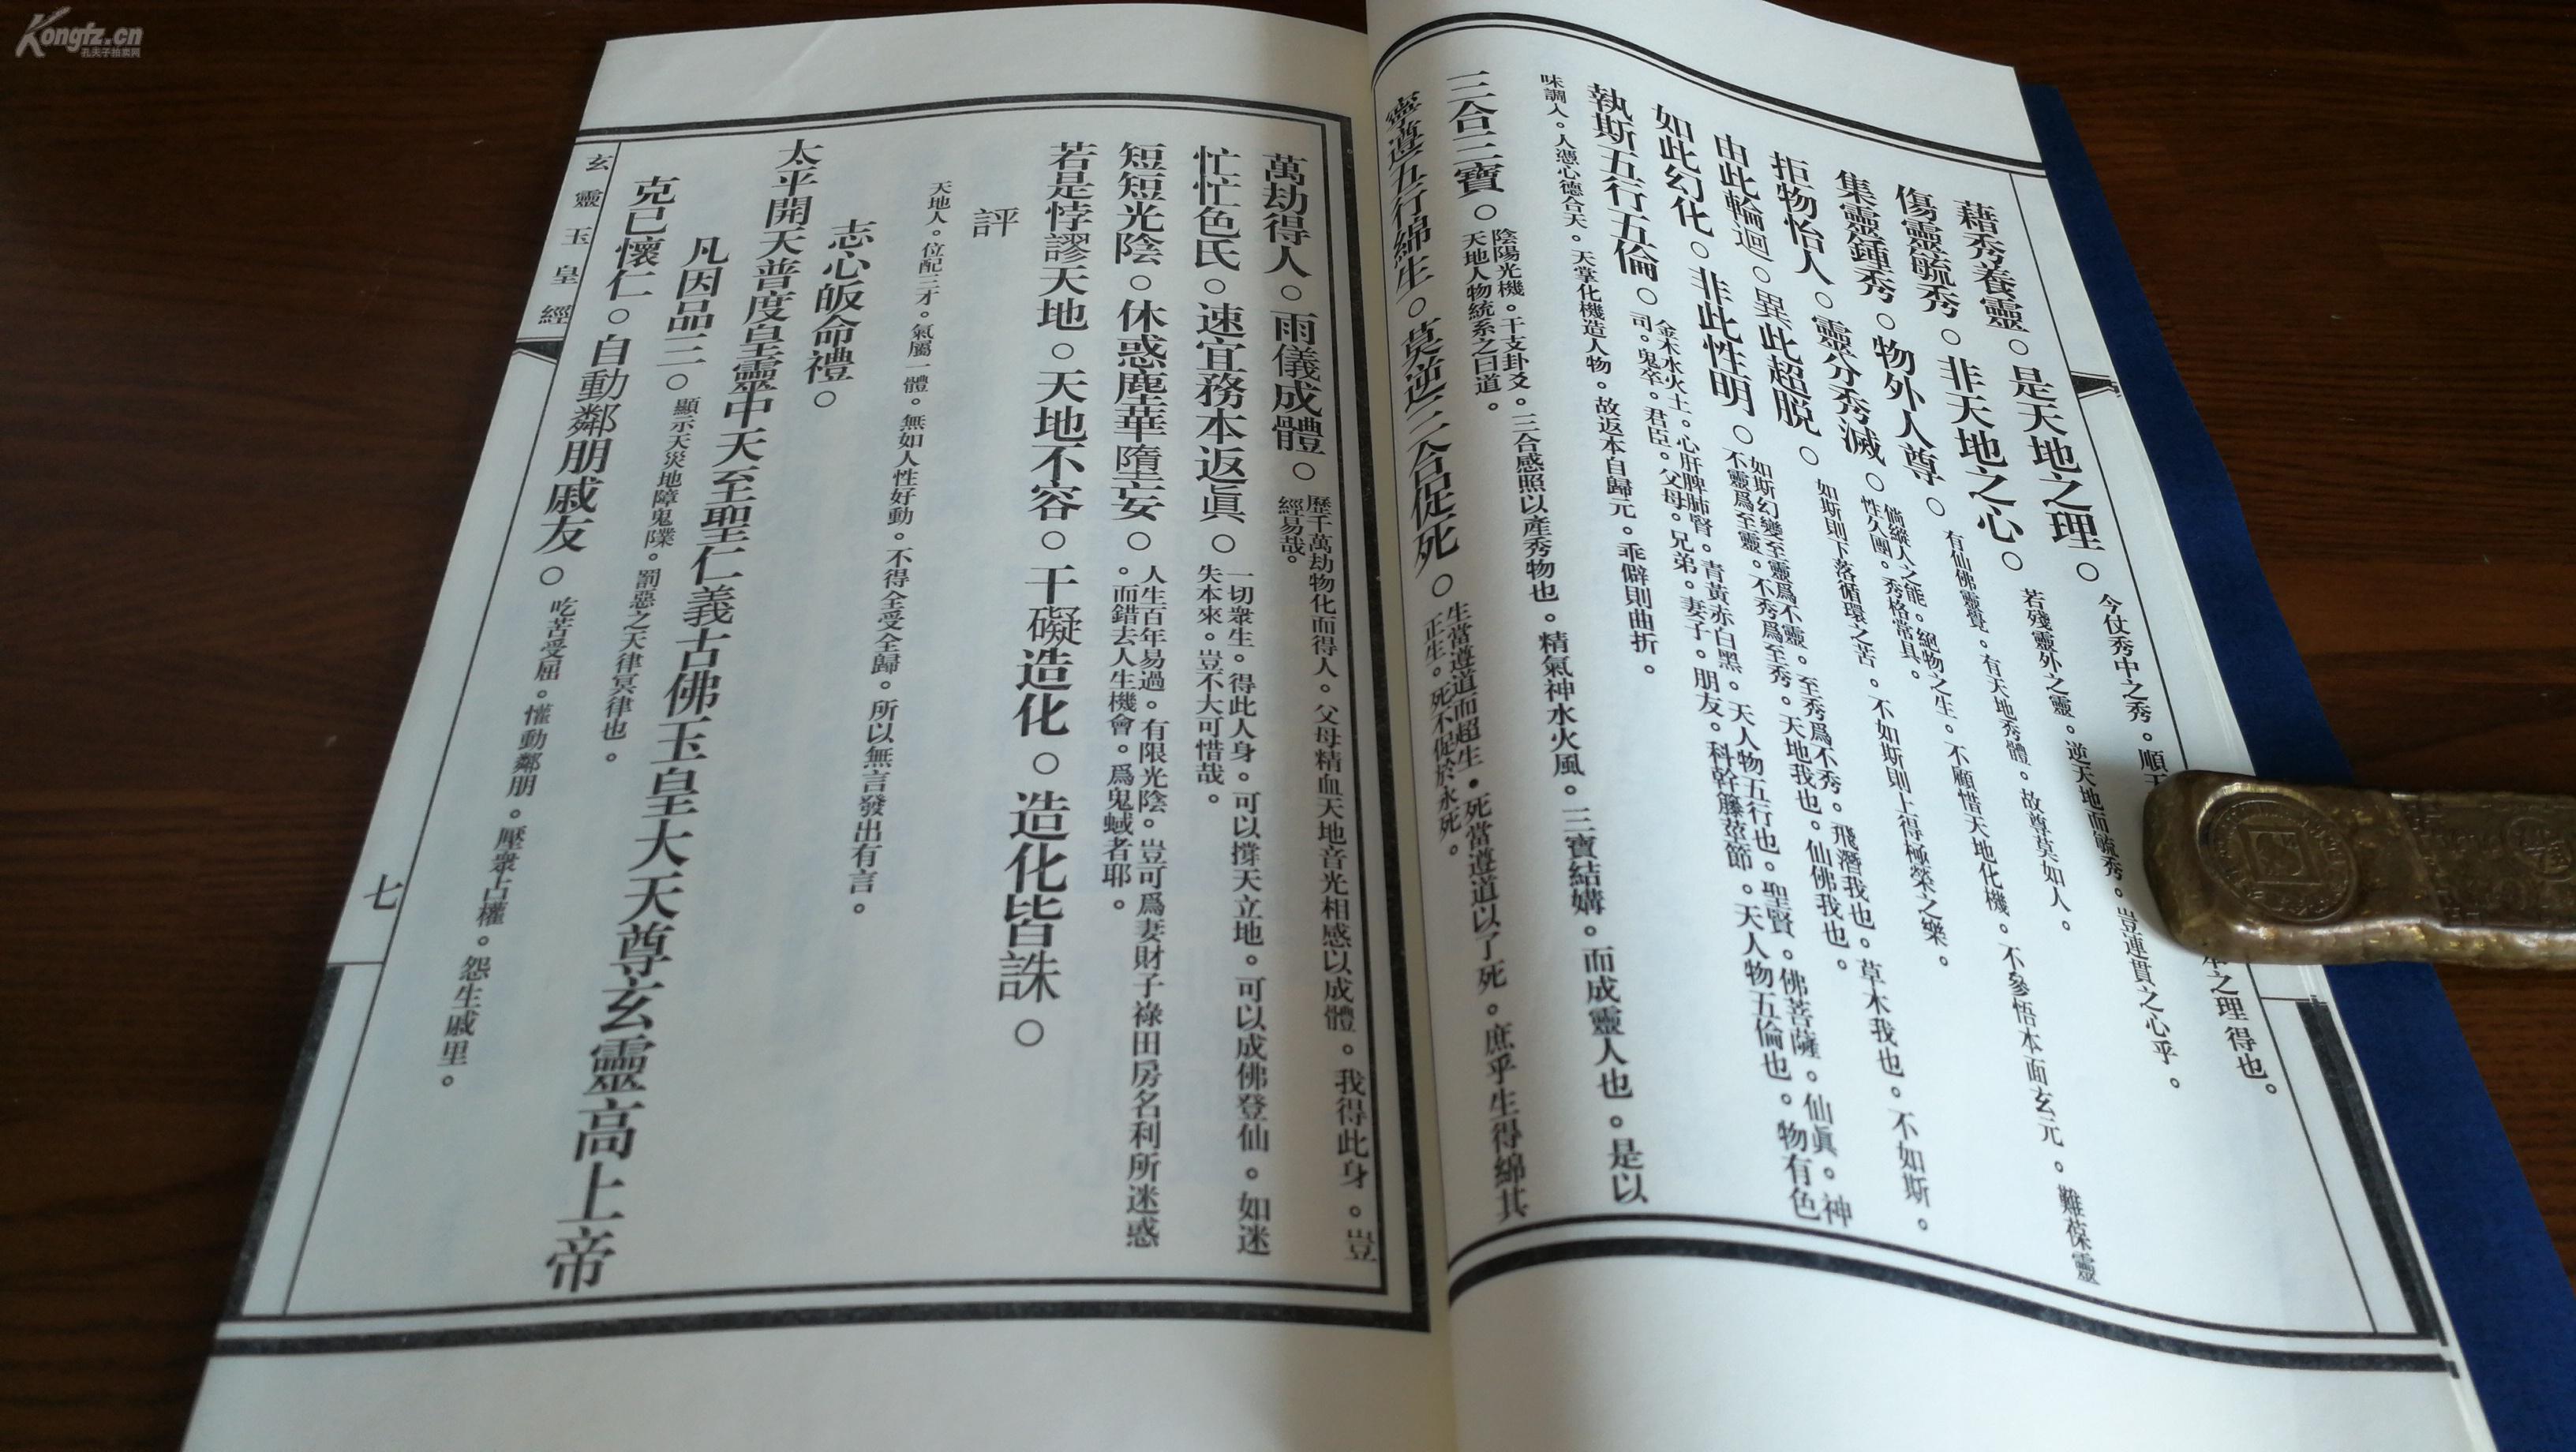 Kongfz.cn
孔夫子拍卖网
藉秀養靈○是天地之理○今仗秀中之秀。順天
本之理得也。
傷靈毓秀○非天地之心○若殘靈外之靈。逆天地而毓秀。豈連貫之心乎。
集靈鍾秀○物外人尊○有仙佛靈覺。有天地秀體。故尊莫如人。
拒物怡人○靈分秀滅○倘縱人之能。絕物之生。不顧惜天地化機。不參悟本面玄元。難葆靈
性久團。秀格常具。
由此輪迴○異此超脫○如斯則下落循環之苦。不如斯則上得極榮之樂。
如此幻化○非此性明○如斯幻變至靈爲不靈。至秀爲不秀。飛潛我也。草木我也。不如斯。
不靈爲至靈。不秀爲至秀。天地我也。仙佛我也。
執斯五行五倫○金木水火土。心肝脾肺腎。青黃赤白黑。天人物五行也。聖賢。佛菩薩。仙眞。神
司。鬼卒。君臣。父母。兄弟。妻子。朋友。科幹籐莖節。天人物五倫也。物有色
味調人。人憑心德合天。天掌化機造人物。故返本自歸元。乖僻則曲折。
三合三寶○陰陽光機。干支卦爻。三合感照以產秀物也。精氣神水火風。三寶結媾。而成靈人也。是以
天地人物統系之曰道。
寧遵五行綿生○莫逆三合促死○生當遵道而超生。死當遵道以了死。庶乎生得綿其
正生。死不促於永死。
萬劫得人○雨儀成體○歷千萬劫物化而得人。父母精血天地音光相感以成體。我得此身。豈
經易哉。
忙忙色氏○速宜務本返眞○一切衆生。得此人身。可以撐天立地。可以成佛登仙。如迷
失本來。豈不大可惜哉。
短短光陰○休惑塵華墮妄○人生百年易過。有限光陰。豈可爲妻財子祿田房名利所迷惑
。而錯去人生機會。爲鬼蜮者耶。
若是悖謬天地○天地不容○干礙造化○造化皆誅○
評
天地人。位配三才。氣屬一體。無如人性好動。不得全受全歸。所以無言發出有言。
志心皈命禮○
太平開天普度皇靈中天至聖仁義古佛玉皇大天尊玄靈高上帝
凡因品三○顯示天災地障鬼㸁。罰惡之天律冥律也。
克已懷仁○自動鄰朋戚友○吃苦受屈。懂動鄰朋。壓衆占權。怨生戚里。
玄靈玉皇經
七